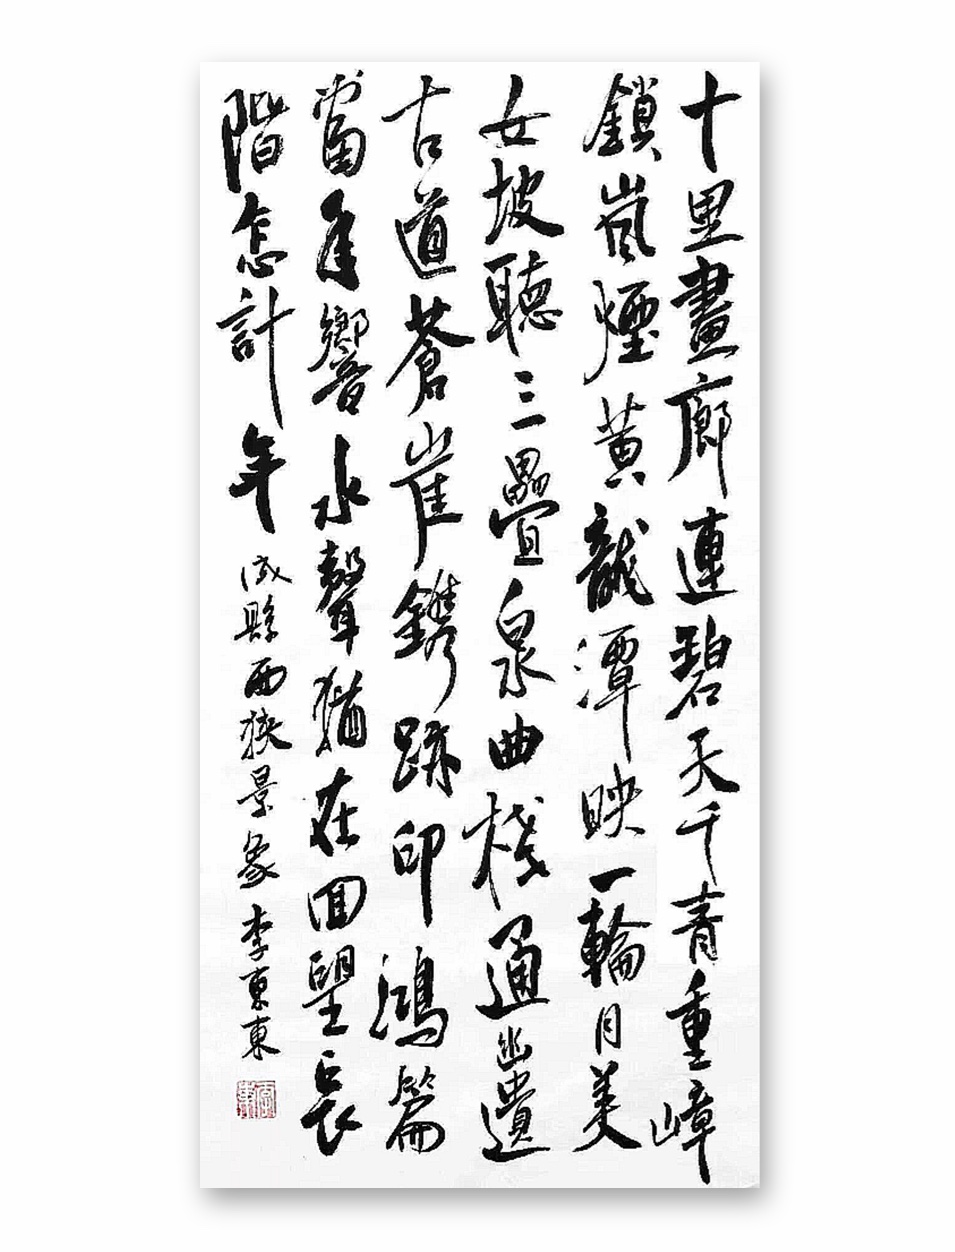 十里畫廊連碧天千青重嶂
鎖嵐煙黃龍潭映一輪月美
女坡聽三疊泉曲棧通幽遺
古道蒼崖鐫跡印鴻篇
當年響水聲猶在回望長
階怎計年
成縣西狹景象李東東